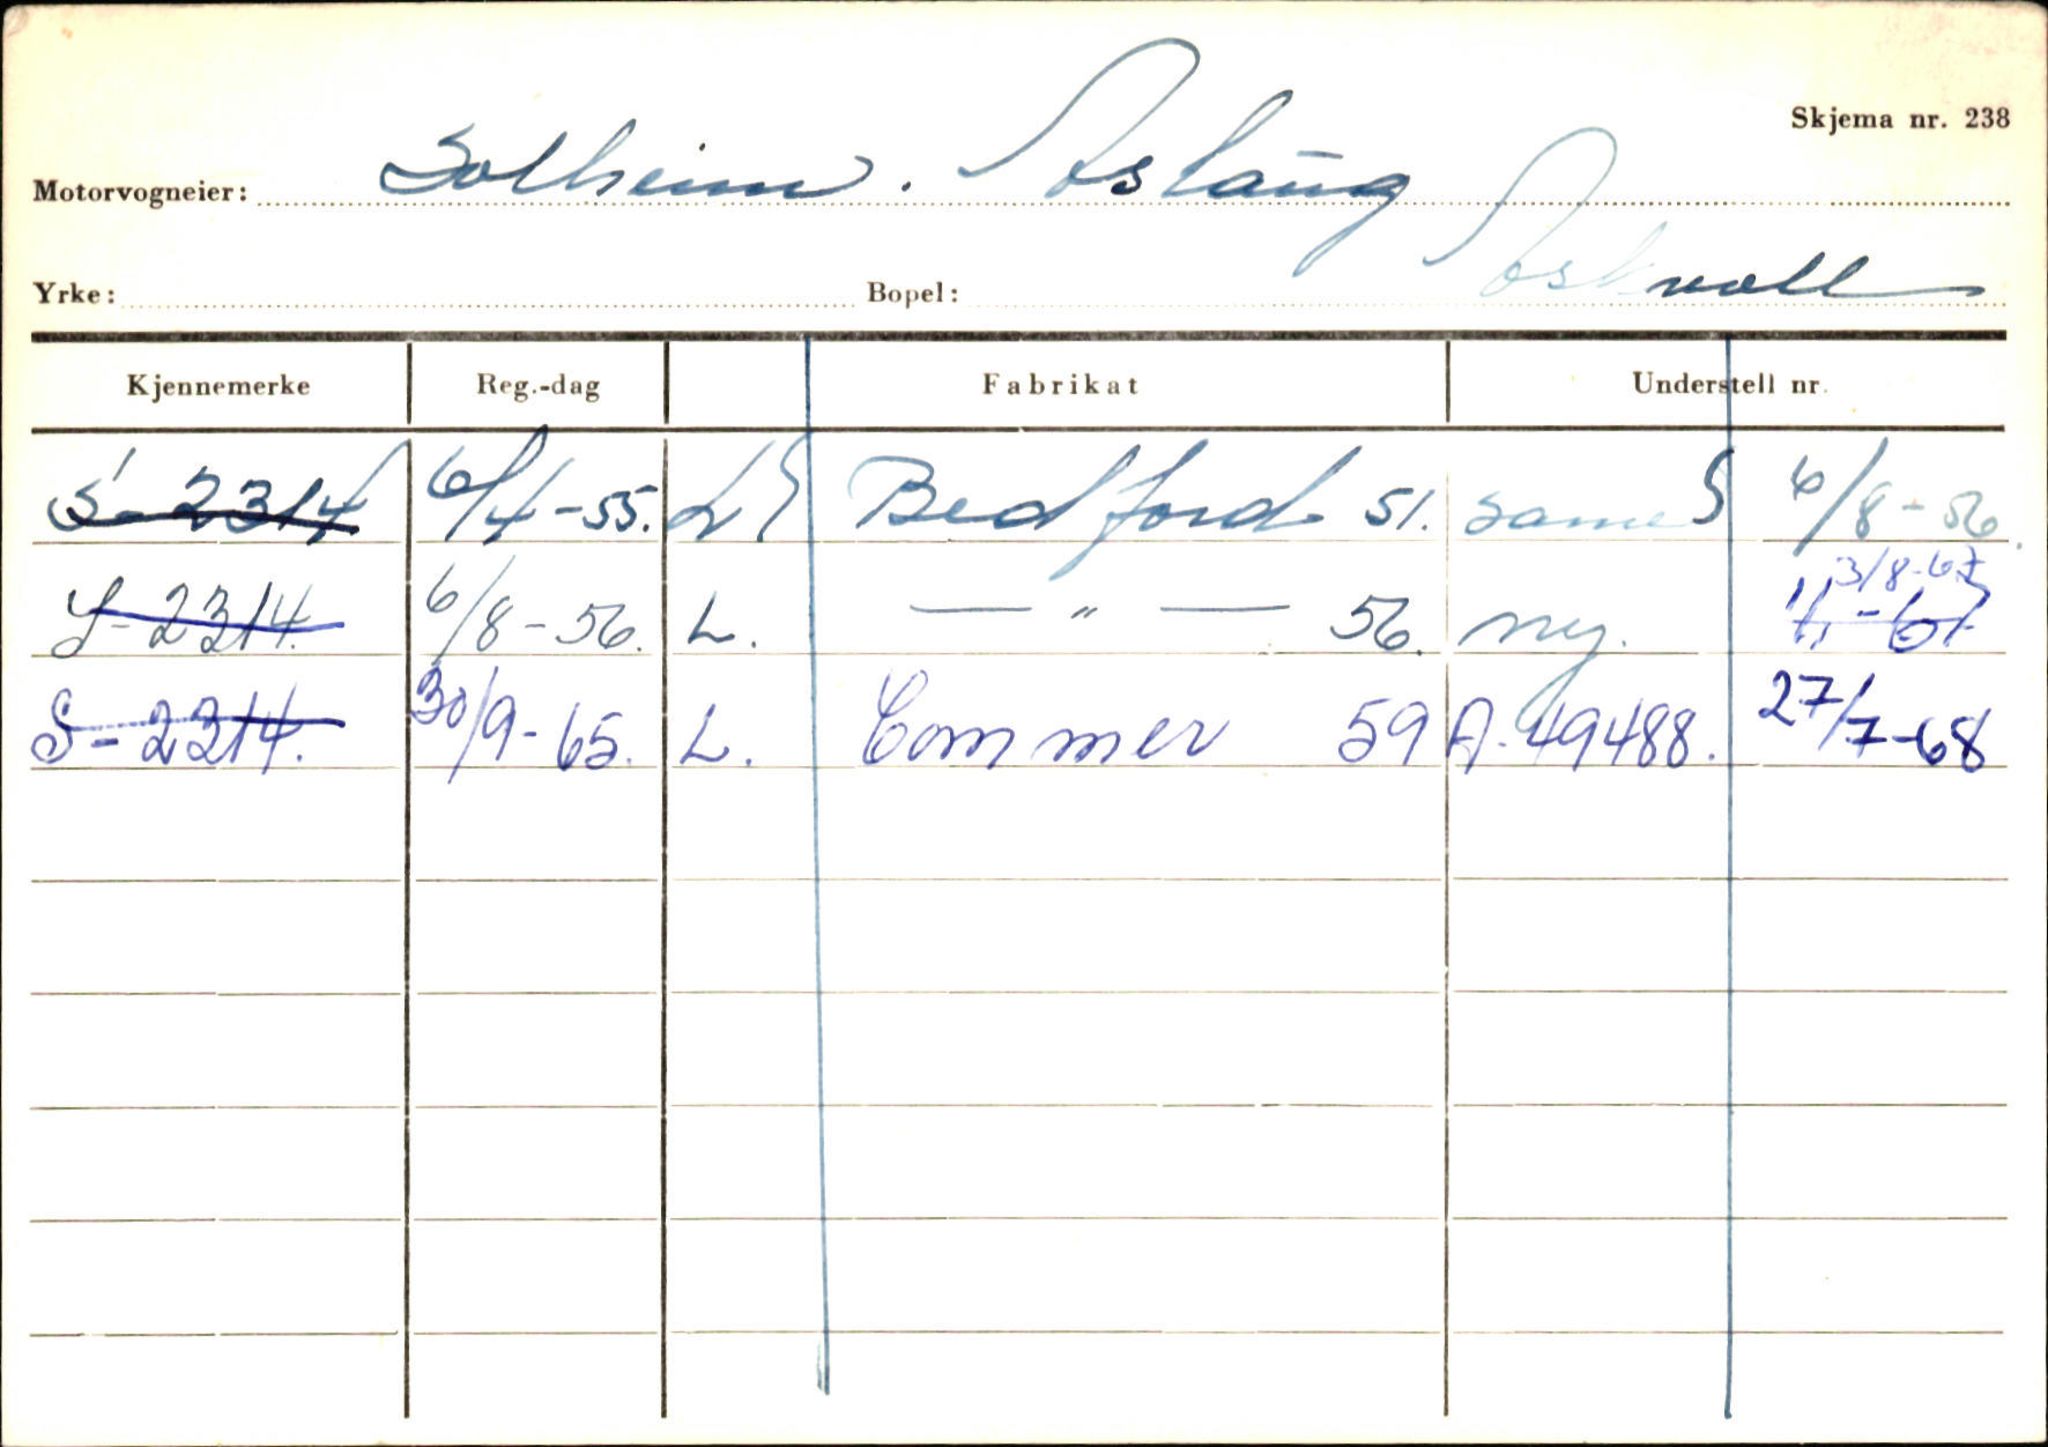 Skjema nr. 238
Motorvogneier: Solheim. Aslaug
Yrke: Bopel: Askvoll
Kjennemerke Reg.-dag Fabrikat Understell nr.
S-2314 6/4-55. L Bedford 51. same 6/8-56.
3/8-67
S-2314. 6/8-56. L. —〃— 56. ny.
S-2314. 30/9-65. L. Commer 59 A-49488. 27/7-68